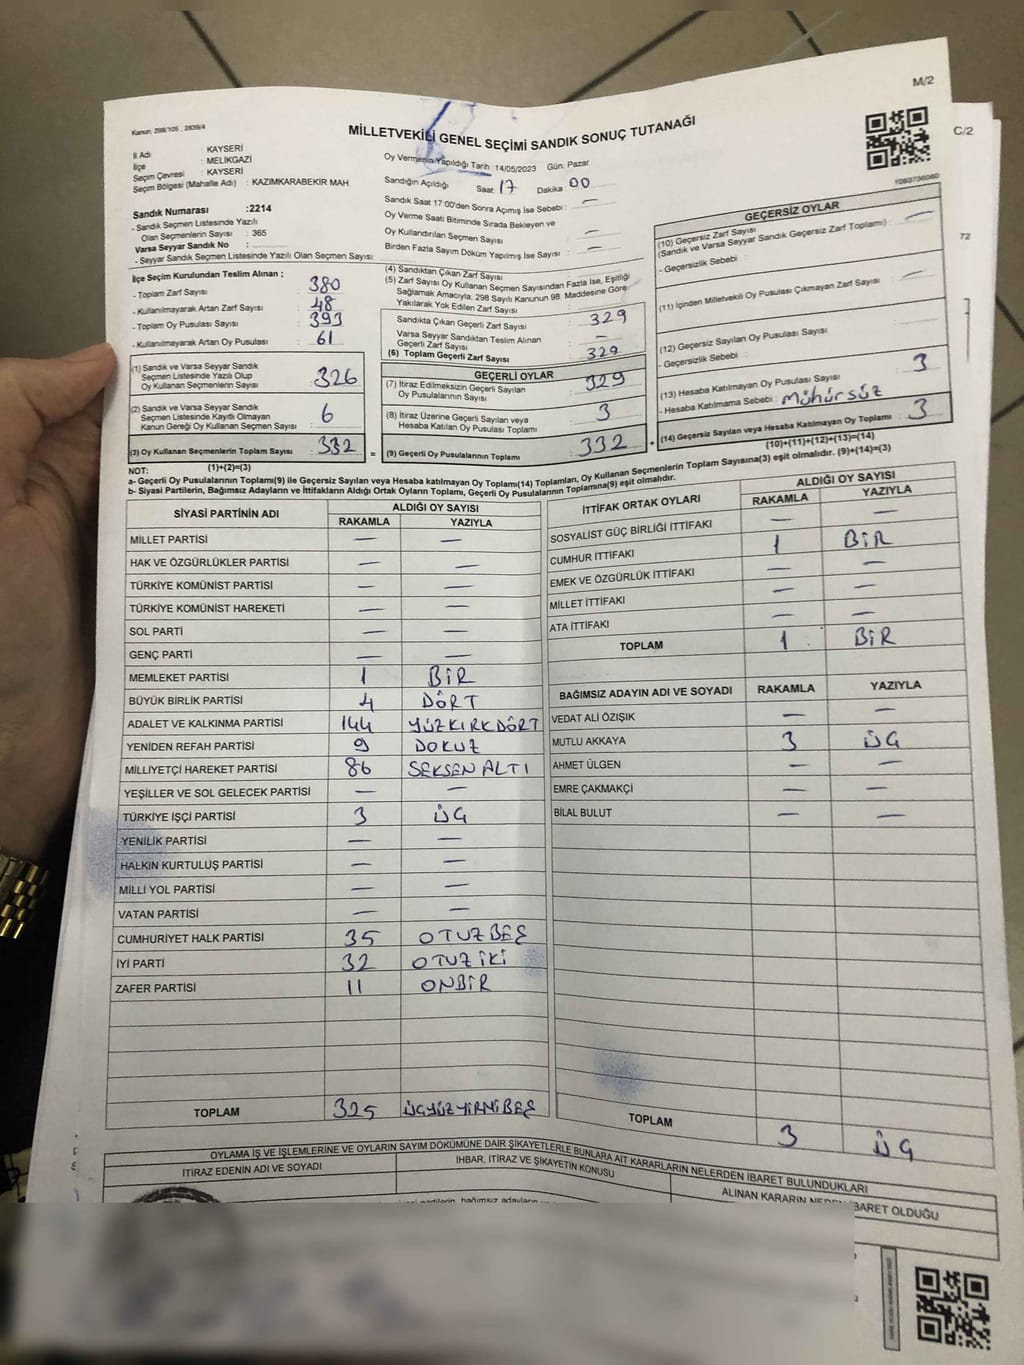 M/2
Kanun: 298/105 , 2839/4
MİLLETVEKİLİ GENEL SEÇİMİ SANDIK SONUÇ TUTANAĞI
C/2
İl Adı : KAYSERİ
İlçe : MELİKGAZİ
Seçim Çevresi : KAYSERİ
Seçim Bölgesi (Mahalle Adı) : KAZIMKARABEKİR MAH
Sandık Numarası :2214
- Sandık Seçmen Listesinde Yazılı
Olan Seçmenlerin Sayısı : 365
Varsa Seyyar Sandık No :
- Seyyar Sandık Seçmen Listesinde Yazılı Olan Seçmen Sayısı:
Oy Vermenin Yapıldığı Tarih :14/05/2023 Gün: Pazar
Sandığın Açıldığı Saat 17 Dakika 00
Sandık Saat 17:00'den Sonra Açılmış İse Sebebi : —
Oy Verme Saati Bitiminde Sırada Bekleyen ve
Oy Kullandırılan Seçmen Sayısı : —
Birden Fazla Sayım Döküm Yapılmış İse Sayısı : —
72
İlçe Seçim Kurulundan Teslim Alınan :
- Toplam Zarf Sayısı : 380
- Kullanılmayarak Artan Zarf Sayısı : 48
- Toplam Oy Pusulası Sayısı : 393
- Kullanılmayarak Artan Oy Pusulası : 61
(1) Sandık ve Varsa Seyyar Sandık
Seçmen Listesinde Yazılı Olup
Oy Kullanan Seçmenlerin Sayısı : 326
(2) Sandık ve Varsa Seyyar Sandık
Seçmen Listesinde Kayıtlı Olmayan
Kanun Gereği Oy Kullanan Seçmen Sayısı : 6
(3) Oy Kullanan Seçmenlerin Toplam Sayısı : 332
(1)+(2)=(3)
(4) Sandıktan Çıkan Zarf Sayısı :
(5) Zarf Sayısı Oy Kullanan Seçmen Sayısından Fazla İse, Eşitliği
Sağlamak Amacıyla; 298 Sayılı Kanunun 98. Maddesine Göre
Yakılarak Yok Edilen Zarf Sayısı :
Sandıkta Çıkan Geçerli Zarf Sayısı : 329
Varsa Seyyar Sandıktan Teslim Alınan
Geçerli Zarf Sayısı : —
(6) Toplam Geçerli Zarf Sayısı : 329
GEÇERLİ OYLAR
(7) İtiraz Edilmeksizin Geçerli Sayılan
Oy Pusulalarının Sayısı : 329
(8) İtiraz Üzerine Geçerli Sayılan veya
Hesaba Katılan Oy Pusulası Toplamı : 3
= (9) Geçerli Oy Pusulalarının Toplamı : 332
GEÇERSİZ OYLAR
(10) Geçersiz Zarf Sayısı
(Sandık ve Varsa Seyyar Sandık Geçersiz Zarf Toplamı) : —
- Geçersizlik Sebebi :
(11) İçinden Milletvekili Oy Pusulası Çıkmayan Zarf Sayısı : —
(12) Geçersiz Sayılan Oy Pusulası Sayısı :
- Geçersizlik Sebebi :
(13) Hesaba Katılmayan Oy Pusulası Sayısı : 3
- Hesaba Katılmama Sebebi : MÜHÜRSÜZ
+ (14) Geçersiz Sayılan veya Hesaba Katılmayan Oy Toplamı : 3
(10)+(11)+(12)+(13)=(14)
NOT:
a- Geçerli Oy Pusulalarının Toplamı(9) ile Geçersiz Sayılan veya Hesaba katılmayan Oy Toplamı(14) Toplamları, Oy Kullanan Seçmenlerin Toplam Sayısına(3) eşit olmalıdır. (9)+(14)=(3)
b- Siyasi Partilerin, Bağımsız Adayların ve İttifakların Aldığı Ortak Oyların Toplamı, Geçerli Oy Pusulalarının Toplamına(9) eşit olmalıdır.
SİYASİ PARTİNİN ADI ALDIĞI OY SAYISI
RAKAMLA YAZIYLA
MİLLET PARTİSİ — —
HAK VE ÖZGÜRLÜKLER PARTİSİ — —
TÜRKİYE KOMÜNİST PARTİSİ — —
TÜRKİYE KOMÜNİST HAREKETİ — —
SOL PARTİ — —
GENÇ PARTİ — —
MEMLEKET PARTİSİ 1 BİR
BÜYÜK BİRLİK PARTİSİ 4 DÖRT
ADALET VE KALKINMA PARTİSİ 144 YÜZKIRKDÖRT
YENİDEN REFAH PARTİSİ 9 DOKUZ
MİLLİYETÇİ HAREKET PARTİSİ 86 SEKSEN ALTI
YEŞİLLER VE SOL GELECEK PARTİSİ — —
TÜRKİYE İŞÇİ PARTİSİ 3 ÜÇ
YENİLİK PARTİSİ — —
HALKIN KURTULUŞ PARTİSİ — —
MİLLİ YOL PARTİSİ — —
VATAN PARTİSİ — —
CUMHURİYET HALK PARTİSİ 35 OTUZBEŞ
İYİ PARTİ 32 OTUZ İKİ
ZAFER PARTİSİ 11 ONBİR
TOPLAM 325 ÜÇYÜZYİRMİBEŞ
İTTİFAK ORTAK OYLARI ALDIĞI OY SAYISI
RAKAMLA YAZIYLA
SOSYALİST GÜÇ BİRLİĞİ İTTİFAKI — —
CUMHUR İTTİFAKI 1 BİR
EMEK VE ÖZGÜRLÜK İTTİFAKI — —
MİLLET İTTİFAKI — —
ATA İTTİFAKI — —
TOPLAM 1 BİR
BAĞIMSIZ ADAYIN ADI VE SOYADI RAKAMLA YAZIYLA
VEDAT ALİ ÖZIŞIK — —
MUTLU AKKAYA 3 ÜÇ
AHMET ÜLGEN — —
EMRE ÇAKMAKÇİ — —
BİLAL BULUT — —
TOPLAM 3 ÜÇ
OYLAMA İŞ VE İŞLEMLERİNE VE OYLARIN SAYIM DÖKÜMÜNE DAİR ŞİKAYETLERLE BUNLARA AİT KARARLARIN NELERDEN İBARET BULUNDUKLARI
İTİRAZ EDENİN ADI VE SOYADI
İHBAR, İTİRAZ VE ŞİKAYETİN KONUSU
ALINAN KARARIN NEDEN İBARET OLDUĞU